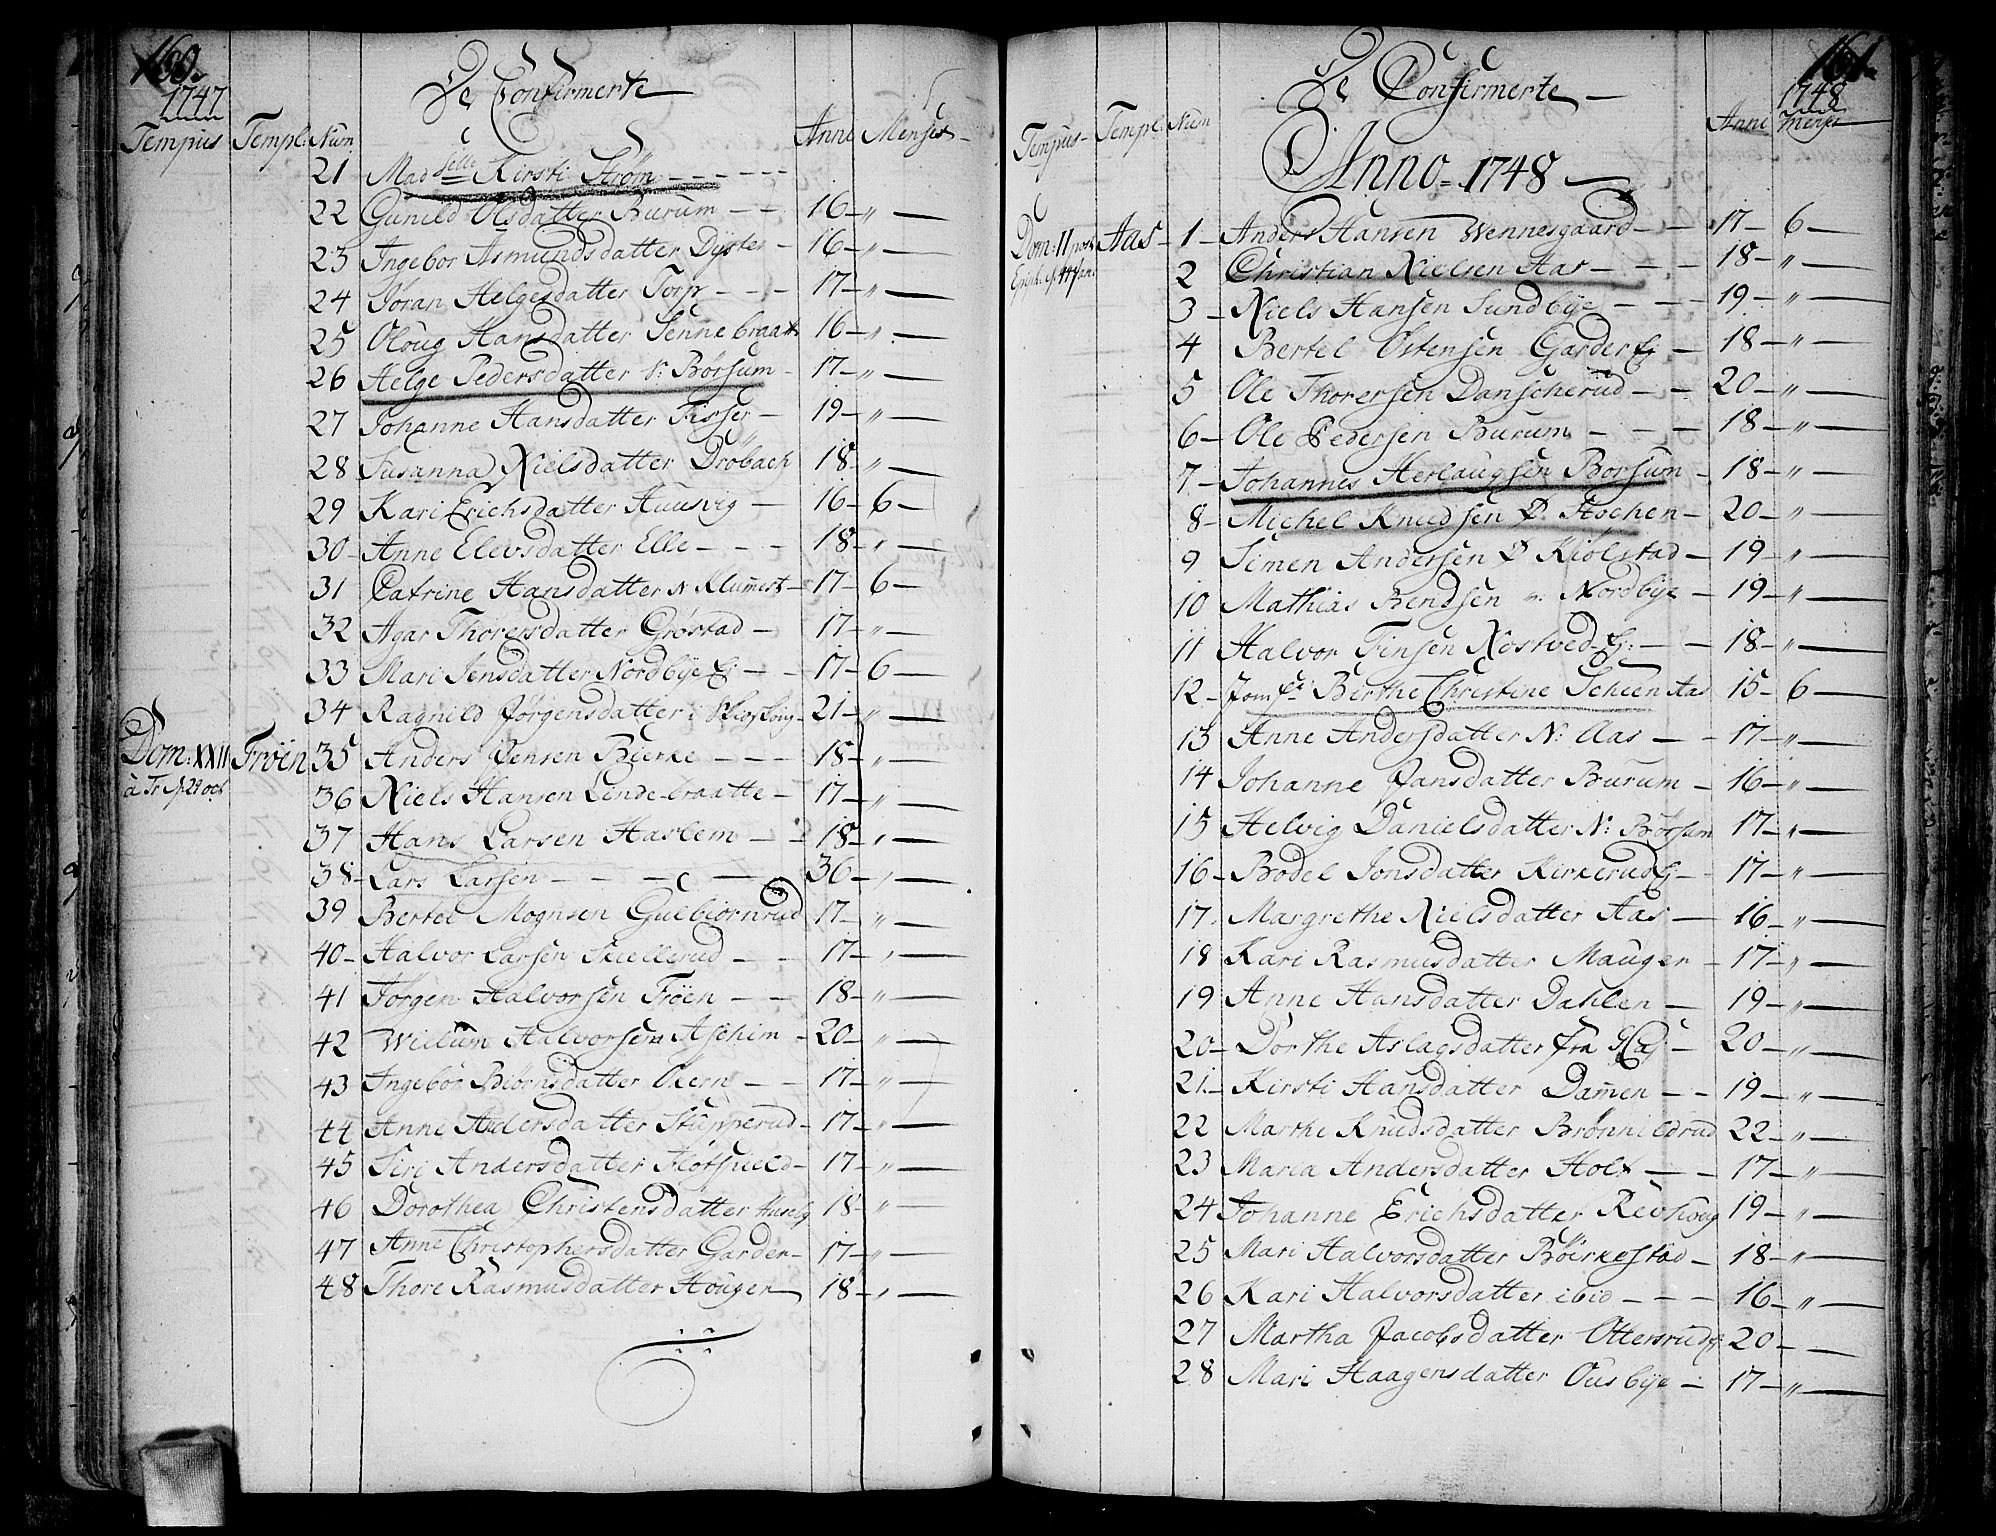 160.
1747
De Confirmerte
Tempus Templ: Num Anni Menses
21 Madselle Kirsti Strøm
22 Gunild Olsdatter Burum 16 "
23 Ingebor Asmundsdatter Dyster 16 "
24 Jøran Helgesdatter Torp 17 "
25 Oloug Hansdatter Sennebraat 16 "
26 Helge Pedersdatter S: Børsum 17 "
27 Johanne Hansdatter Fisser 19 "
28 Susanna Nielsdatter Drobach 18 "
29 Kari Erichsdatter Huusvig 16 6
30 Anne Elevsdatter Elle 18 "
31 Catrine Hansdatter N Klumest 17 6
32 Agar Thorersdatter Grøstad 17 "
33 Mari Jensdatter Nordbye Ej 17 6
34 Ragnild Jørgensdatter i 21 "
Dom: XXII Frøen 35 Anders Jensen Bierke 18 "
à Tr 29 oct 36 Niels Hansen Lindebraatte 17 "
37 Hans Larsen Haslem 18 "
38 Lars Larsen 36 "
39 Bertel Mognsen Gulbiørnrud 17 "
40 Halvor Larsen Skiellerud 17 "
41 Jørgen Halvorsen Frøen 18 "
42 Willum Halvorsen Aschim 20 "
43 Ingebor Biørnsdatter Økern 17 "
44 Anne Andersdatter Stupperud 17 "
45 Siri Andersdatter Fløtspield 17 "
46 Dorothea Christensdatter 18 "
47 Anne Christophersdatter Garder 17 "
48 Thore Rasmusdatter Houger 18 "
161.
1748
De Confirmerte
Tempus Templ: Num Anni Menses
Anno 1748
Dom: II post Aas 1 Anders Hansen Wennesgaard 17 6
Epiph: 2 Christian Nielsen Aas 18 "
3 Niels Hansen Sundbye 19 "
4 Bertel Ostensen Garder Ej 18 "
5 Ole Thorersen Danscherud 20 "
6 Ole Pedersen Burum 18 "
7 Johannes Herlaugsen Borsum 18 "
8 Michel Knudsen Ø. Skochen 20 "
9 Simen Andersen Ø Kiølstad 19 "
10 Mathias Bendsen Nordbye 19 "
11 Halvor Finsen Nøstved Ej: 18 "
12 Jomfr: Birthe Christine Scheen Aas 15 6
13 Anne Andersdatter N: Aas 17 "
14 Johanne Jansdatter Burum 16 "
15 Helvig Danielsdatter N: Børsum 17 "
16 Bodel Jonsdatter Kirkerud Ej 17 "
17 Margrethe Nielsdatter Aas 16 "
18 Kari Rasmusdatter Mauger 17 "
19 Anne Hansdatter Dahlen 19 "
20 Dorthe Aslagsdatter fra 20 "
21 Kirsti Hansdatter Damen 19 "
22 Marthe Knudsdatter Brønnildrud 22 "
23 Maria Andersdatter Holt 17 "
24 Johanne Erichsdatter Revhoug 19 "
25 Mari Halvorsdatter Bøirkestad 18 "
26 Kari Halvorsdatter ibid 16 "
27 Martha Jacobsdatter Ottersrud 20
28 Mari Haagensdatter Ousbye 17 "